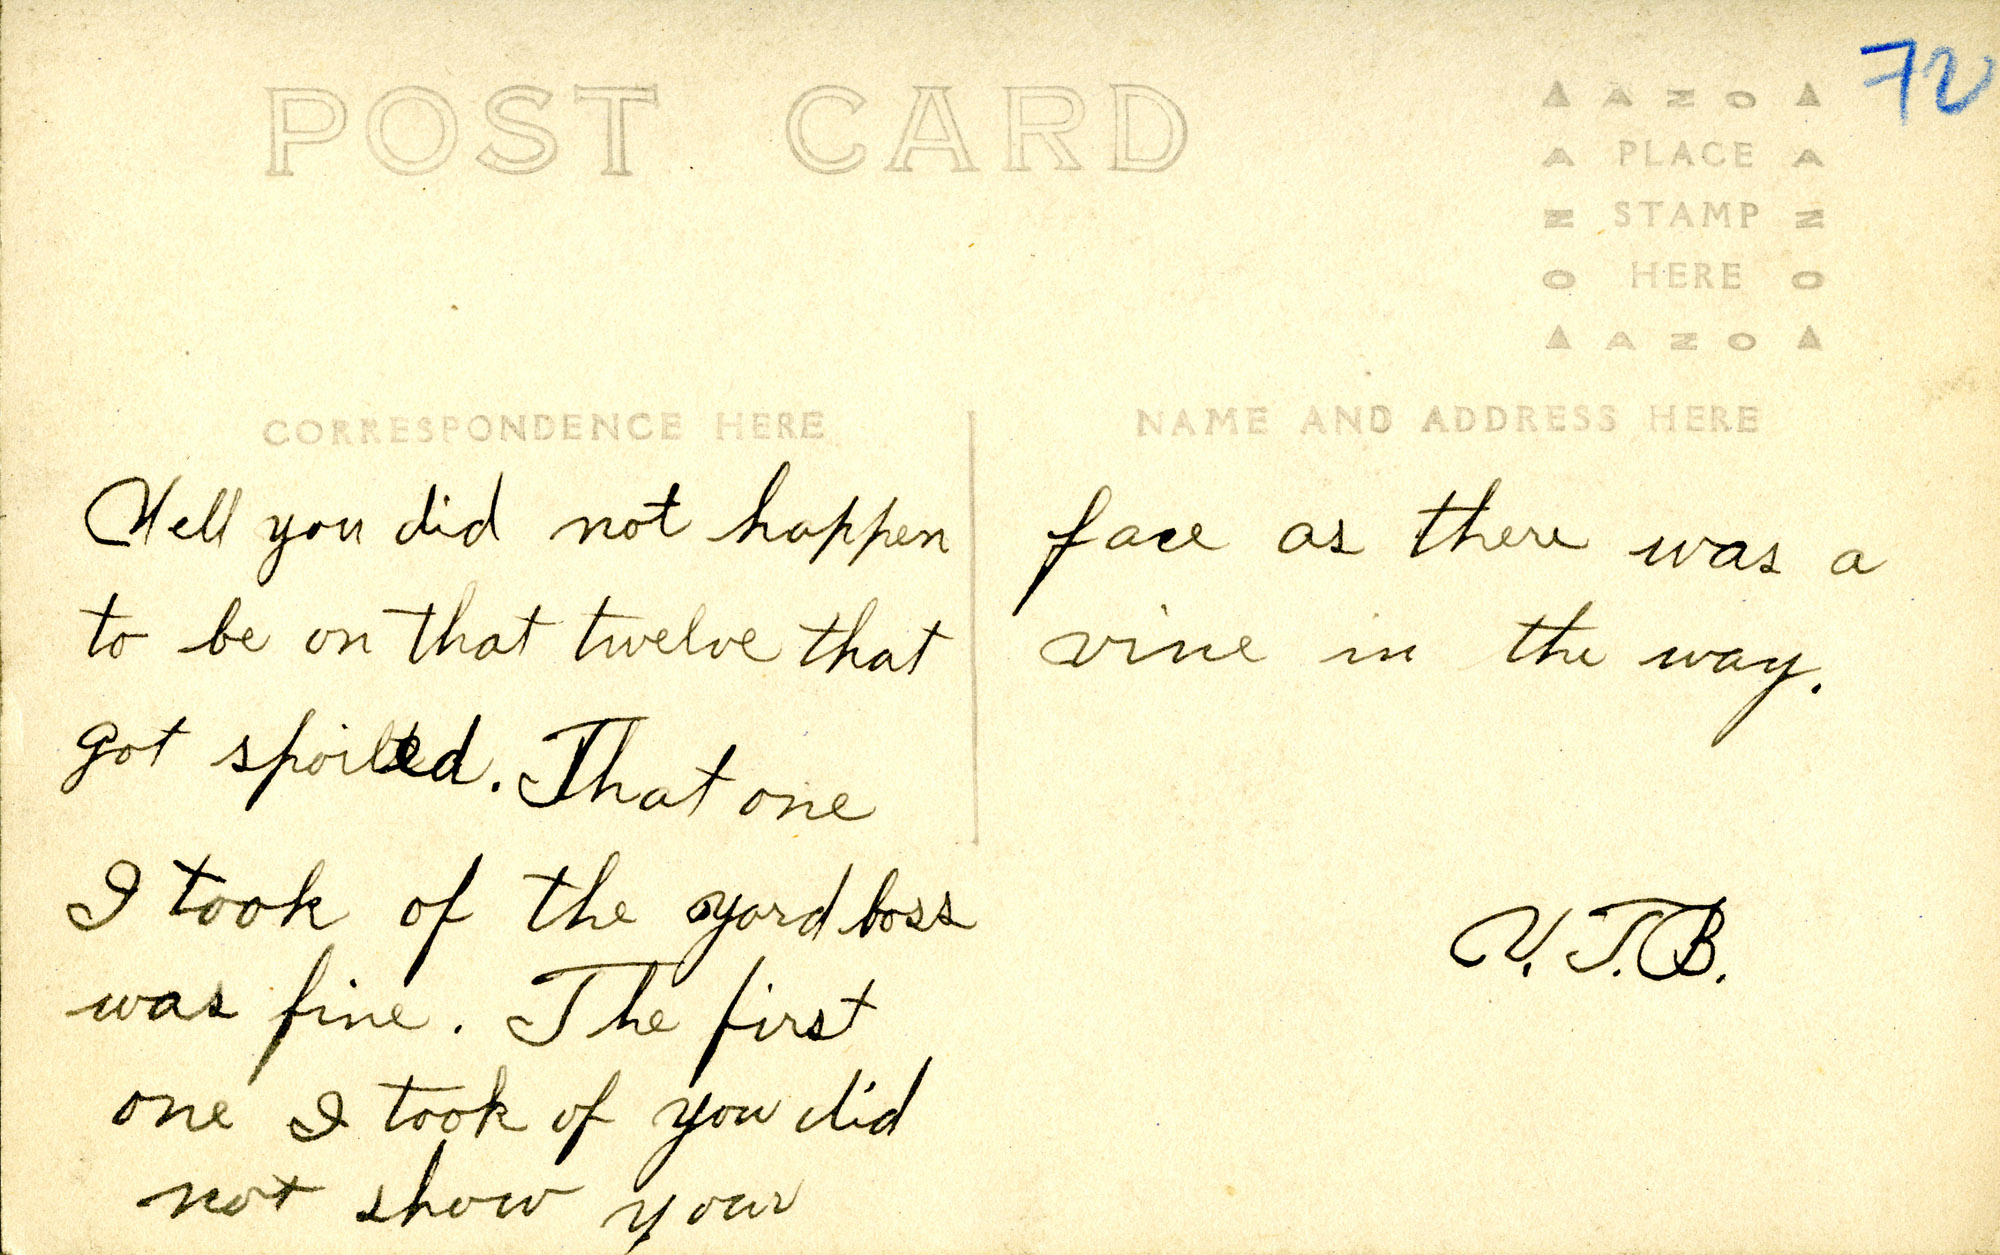 72
POST CARD
AZO
A PLACE A
N STAMP N
O HERE O
AZO
CORRESPONDENCE HERE
NAME AND ADDRESS HERE
Well you did not happen
to be on that twelve that
got spoiled. That one
I took of the yard boss
was fine. The first
one I took of you did
not show your
face as there was a
vine in the way.
V.T.B.